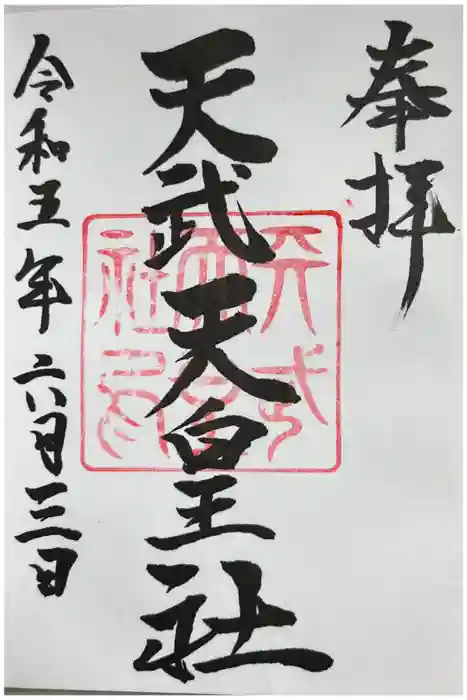 奉拝
天武天皇社
天武
天皇
社印
令和五年六月三日